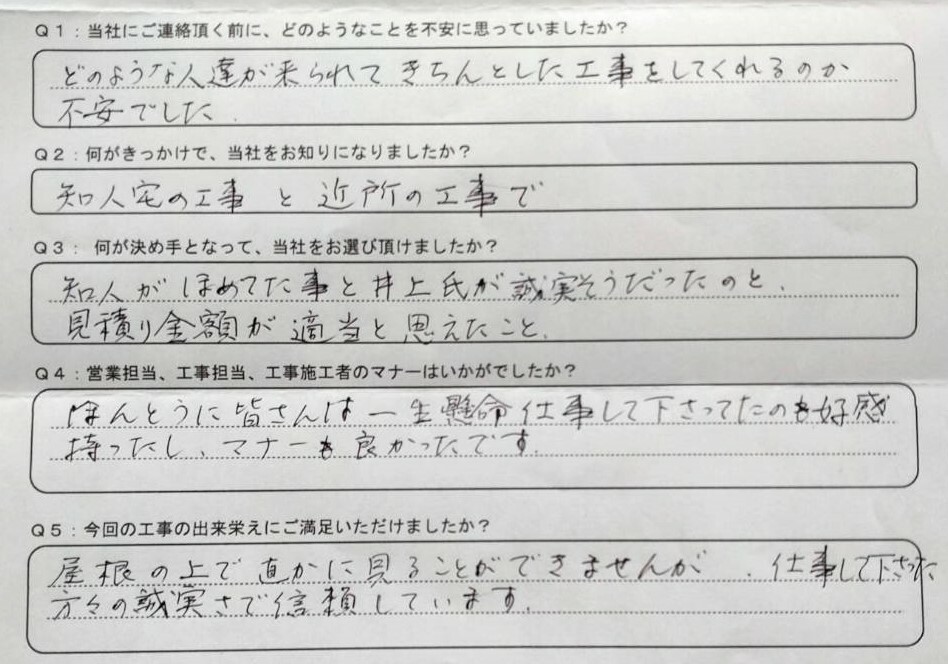 Q1：当社にご連絡頂く前に、どのようなことを不安に思っていましたか？
どのような人達が来られてきちんとした工事をしてくれるのか
不安でした.
Q2：何がきっかけで、当社をお知りになりましたか？
知人宅の工事 と 近所の工事で
Q3： 何が決め手となって、当社をお選び頂けましたか？
知人がほめてた事と井上氏が誠実そうだったのと、
見積り金額が適当と思えたこと.
Q4：営業担当、工事担当、工事施工者のマナーはいかがでしたか？
ほんとうに皆さんは一生懸命仕事して下さってたのも好感
持ったし、マナーも良かったです.
Q5：今回の工事の出来栄えにご満足いただけましたか？
屋根の上で直かに見ることができませんが、仕事して下さった
方々の誠実さで信頼しています.